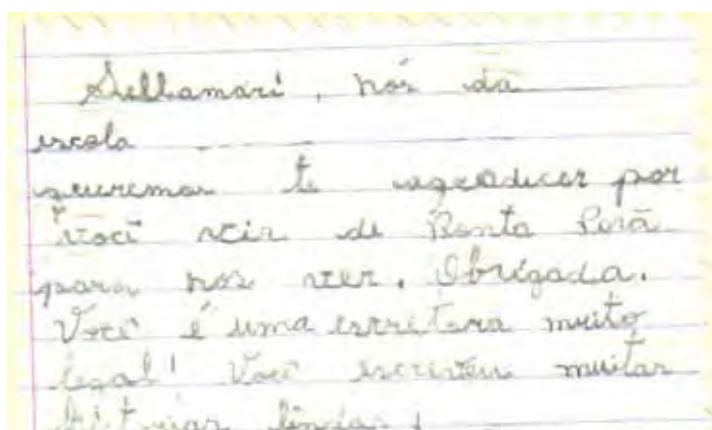 Sellamari, nós da
escola
queremos te agradecer por
você vir de Ponta Porã
para nos ver. Obrigada.
Você é uma escritora muito
legal! Você escreveu muitas
histórias lindas!